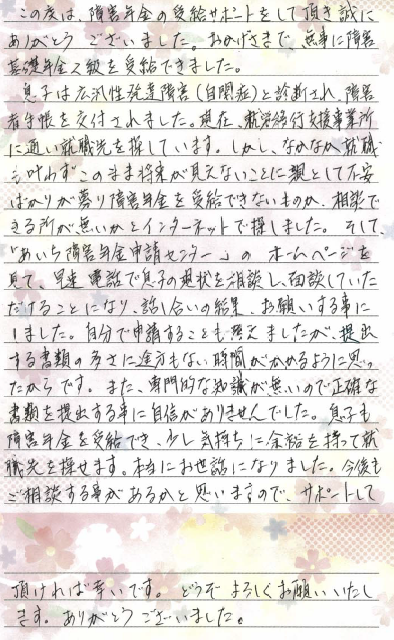 この度は、障害年金の受給サポートをして頂き誠に
ありがとうございました。おかげさまで、無事に障害
基礎年金2級を受給できました。
息子は広汎性発達障害(自閉症)と診断され、障害
者手帳を交付されました。現在、就労移行支援事業所
に通い就職先を探しています。しかし、なかなか就職
も叶わずこのまま将来が見えないことに親として不安
ばかりが募り障害年金を受給できないものか、相談で
きる所が無いかとインターネットで探しました。そして、
「あいち障害年金申請センター」のホームページを
見て、早速電話で息子の現状を相談し、面談していた
だけることになり、話し合いの結果、お願いする事に
しました。自分で申請することも考えましたが、提出
する書類の多さに途方もない時間がかかるように思っ
たからです。また、専門的な知識が無いので正確な
書類を提出する事に自信がありませんでした。息子も
障害年金を受給でき、少し気持ちに余裕を持って就
職先を探せます。本当にお世話になりました。今後も
ご相談する事があるかと思いますので、サポートして
頂ければ幸いです。どうぞよろしくお願いいたし
ます。ありがとうございました。